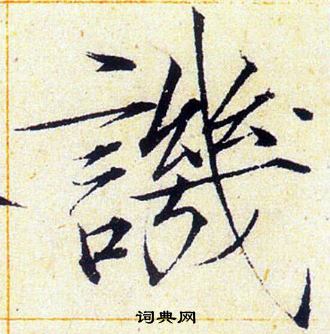 譏
词典网